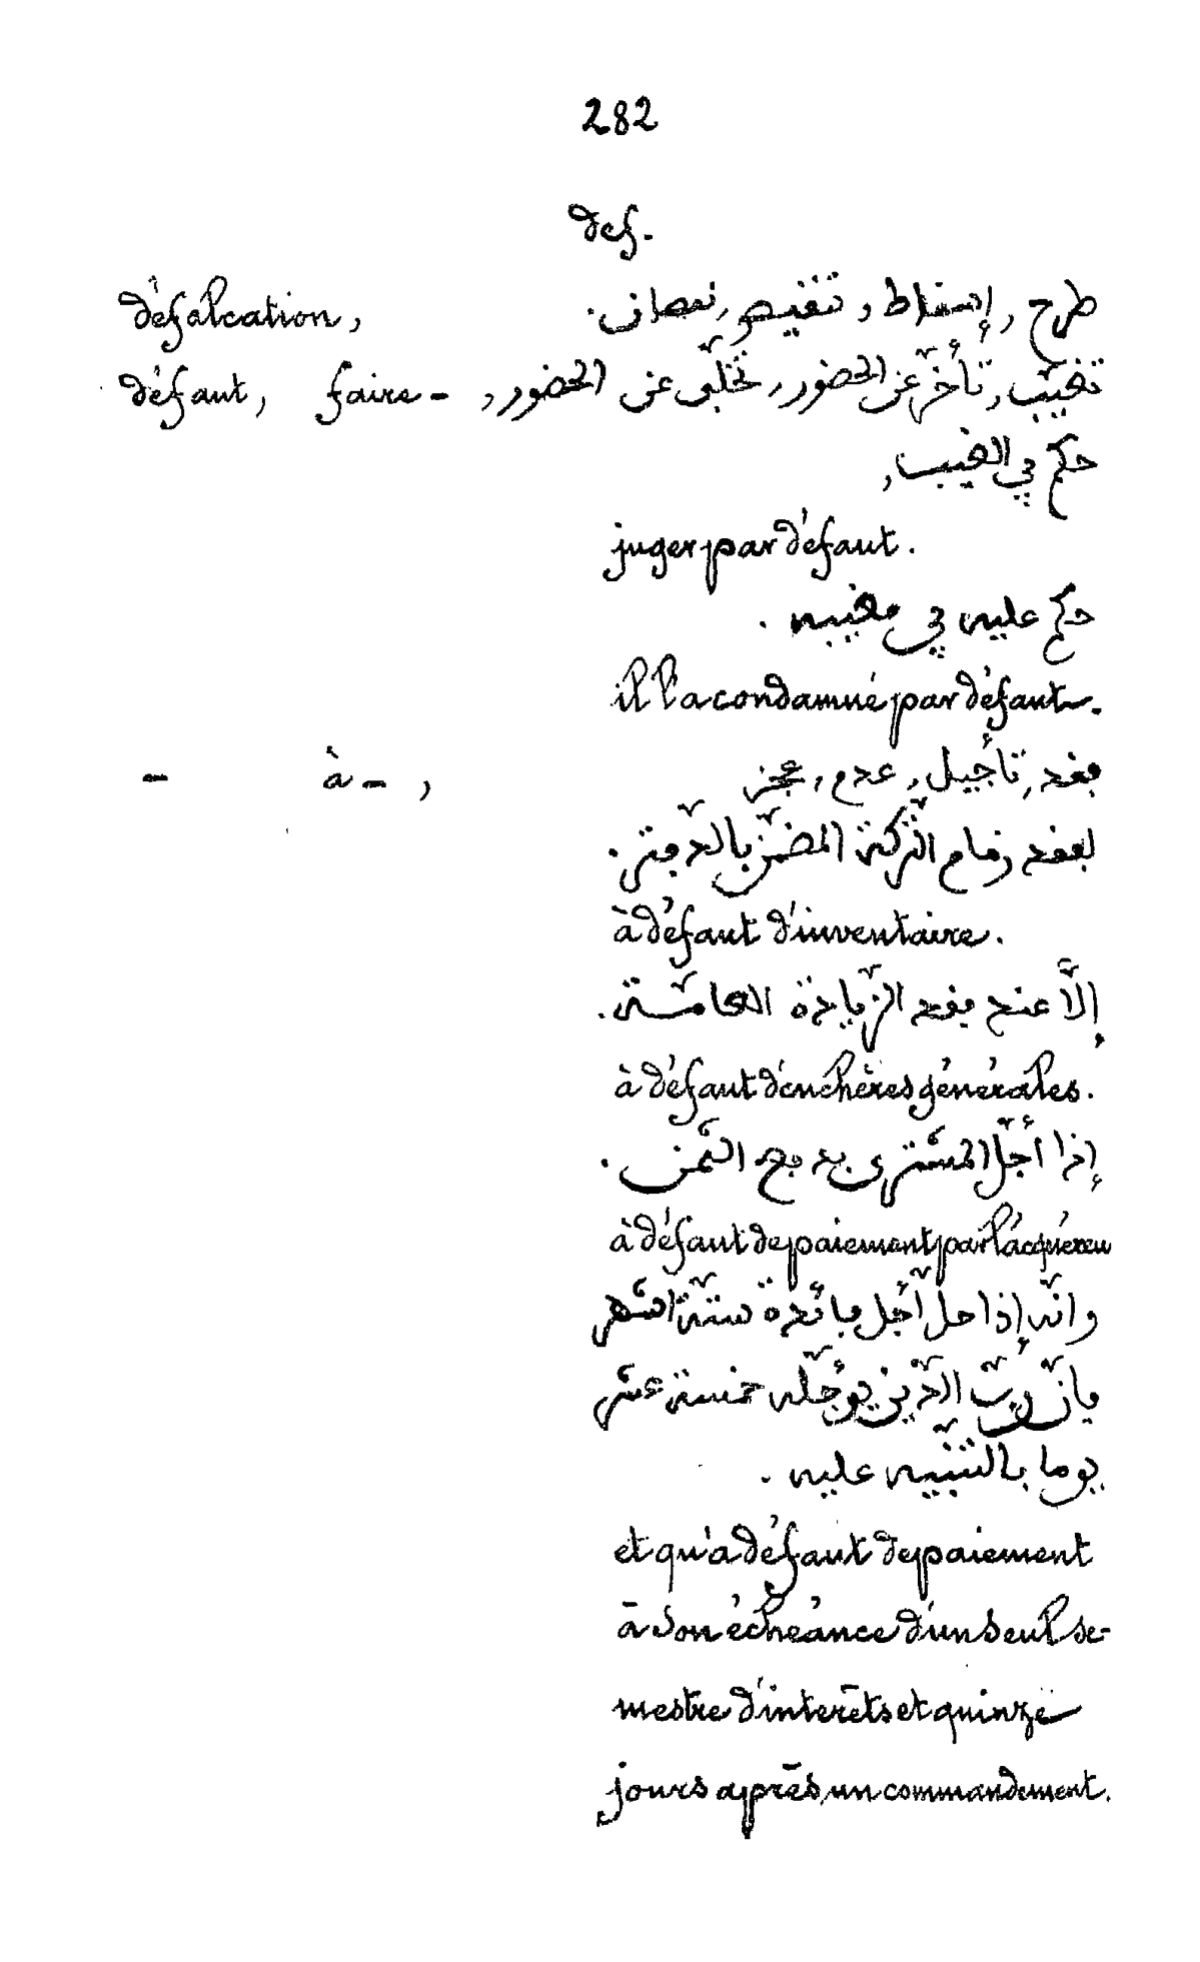 282
def.
défalcation, طرح, إسقاط, تنفيص, نقصان.
défaut, faire -, تغيّب, تأخّر عن الحضور, تخلّى عن الحضور,
حكم في الغيب,
juger par défaut.
حكم عليه في مغيبه.
il l'a condamné par défaut.
- à -, فقد, تأجيل, عدم, عجز
لفقد زمام التّركة المضمّن بالدّفتر.
à défaut d'inventaire.
إلّا عند فقد الزّيادة العامّة.
à défaut d'enchères générales.
إذا أجّل المشترى بدفع الثّمن.
à défaut de paiement par l'acquéreu
وانّه إذا حلّ أجل فائدة ستّة اشهر
فانّ ربّ الدّين يؤجّله خمسة عشر
يوما بالتّنبيه عليه.
et qu'à défaut de paiement
à son échéance d'un seul se-
mestre d'intérêts et quinze
jours après, un commandement.